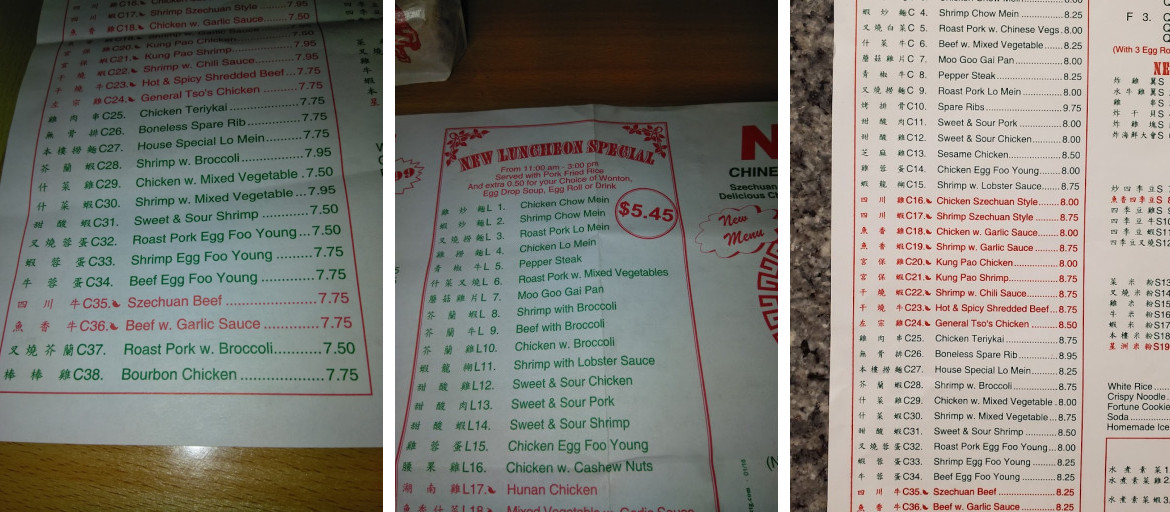 C16. Chicken Szechuan Style
蝦C17. Shrimp Szechuan Style ... 7.95
魚 香 雞C18. Chicken w. Garlic Sauce ... 7.50
7.95
宮 保 雞C20. Kung Pao Chicken
宮 保 蝦C21. Kung Pao Shrimp ... 7.95
干 燒 蝦C22. Shrimp w. Chili Sauce ... 7.95
干 燒 牛C23. Hot & Spicy Shredded Beef ... 7.75
左 宗 雞C24. General Tso's Chicken ... 7.75
雞 肉 串C25. Chicken Teriykai ... 7.75
無 骨 排C26. Boneless Spare Rib ... 7.95
本 樓 撈 麵C27. House Special Lo Mein ... 7.75
芥 蘭 蝦C28. Shrimp w. Broccoli ... 7.95
什 菜 雞C29. Chicken w. Mixed Vegetable . 7.50
什 菜 蝦C30. Shrimp w. Mixed Vegetable ... 7.95
甜 酸 蝦C31. Sweet & Sour Shrimp ... 7.50
叉 燒 蓉 蛋C32. Roast Pork Egg Foo Young ... 7.50
蝦 蓉 蛋C33. Shrimp Egg Foo Young ... 7.75
牛 蓉 蛋C34. Beef Egg Foo Young ... 7.75
四 川 牛C35. Szechuan Beef ... 7.75
魚 香 牛C36. Beef w. Garlic Sauce ... 7.75
叉 燒 芥 蘭C37. Roast Pork w. Broccoli ... 7.50
棒 棒 雞C38. Bourbon Chicken ... 7.75
NEW LUNCHEON SPECIAL
From 11:00 am - 3:00 pm
Served with Pork Fried Rice
And extra 0.50 for your Choice of Wonton,
Egg Drop Soup, Egg Roll or Drink
$5.45
雞 炒 麵L 1. Chicken Chow Mein
蝦 炒 麵L 2. Shrimp Chow Mein
叉 燒 撈 麵L 3. Roast Pork Lo Mein
雞 撈 麵L 4. Chicken Lo Mein
青 椒 牛L 5. Pepper Steak
什 菜 叉 燒L 6. Roast Pork w. Mixed Vegetables
蘑 菇 雞 片L 7. Moo Goo Gai Pan
芥 蘭 蝦L 8. Shrimp with Broccoli
芥 蘭 牛L 9. Beef with Broccoli
芥 蘭 雞L10. Chicken w. Broccoli
蝦 龍 糊L11. Shrimp with Lobster Sauce
甜 酸 雞L12. Sweet & Sour Chicken
甜 酸 肉L13. Sweet & Sour Pork
甜 酸 蝦L14. Sweet & Sour Shrimp
雞 蓉 蛋L15. Chicken Egg Foo Young
腰 果 雞L16. Chicken w. Cashew Nuts
湖 南 雞L17. Hunan Chicken
L18. Mixed Vegetable w. Garlic Sauce
N
CHINE
Szechuan
Delicious Ch
New
Menu
蝦 炒 麵C 4. Shrimp Chow Mein ... 8.25
叉 燒 白 菜C 5. Roast Pork w. Chinese Vegs. 8.00
什 菜 牛C 6. Beef w. Mixed Vegetable ... 8.25
蘑 菇 雞 片C 7. Moo Goo Gai Pan ... 8.00
青 椒 牛C 8. Pepper Steak ... 8.25
叉 燒 撈 麵C 9. Roast Pork Lo Mein ... 8.00
烤 排 骨C10. Spare Ribs ... 9.75
甜 酸 肉C11. Sweet & Sour Pork ... 8.00
甜 酸 雞C12. Sweet & Sour Chicken ... 8.00
芝 麻 雞C13. Sesame Chicken ... 8.50
雞 蓉 蛋C14. Chicken Egg Foo Young ... 8.00
蝦 龍 糊C15. Shrimp w. Lobster Sauce ... 8.75
四 川 雞C16. Chicken Szechuan Style ... 8.00
四 川 蝦C17. Shrimp Szechuan Style ... 8.75
魚 香 雞C18. Chicken w. Garlic Sauce ... 8.00
魚 香 蝦C19. Shrimp w. Garlic Sauce ... 8.75
宮 保 雞C20. Kung Pao Chicken ... 8.00
宮 保 蝦C21. Kung Pao Shrimp ... 8.75
干 燒 蝦C22. Shrimp w. Chili Sauce ... 8.75
干 燒 牛C23. Hot & Spicy Shredded Beef ... 8.75
左 宗 雞C24. General Tso's Chicken ... 8.50
雞 肉 串C25. Chicken Teriykai ... 8.75
無 骨 排C26. Boneless Spare Rib ... 8.95
本 樓 撈 麵C27. House Special Lo Mein ... 8.25
芥 蘭 蝦C28. Shrimp w. Broccoli ... 8.75
什 菜 雞C29. Chicken w. Mixed Vegetable . 8.00
什 菜 蝦C30. Shrimp w. Mixed Vegetable ... 8.75
甜 酸 蝦C31. Sweet & Sour Shrimp ... 8.50
叉 燒 蓉 蛋C32. Roast Pork Egg Foo Young ... 8.00
蝦 蓉 蛋C33. Shrimp Egg Foo Young ... 8.25
牛 蓉 蛋C34. Beef Egg Foo Young ... 8.25
四 川 牛C35. Szechuan Beef ... 8.25
魚 香 牛C36. Beef w. Garlic Sauce ... 8.25
F 3.
(With 3 Egg Ro
NE
炸 雞 翼S
水 牛 雞 翼S
雞 串S
炸 干 貝S
炸 雞 塊S
炸 海 鮮 大 會S
炒 四 季 豆S
魚 香 四 季 豆S
四 季 豆 雞S
四 季 豆 牛S10
四 季 豆 蝦S11
四 季 豆 叉 燒S12
菜 米 粉S13
叉 燒 米 粉S14
雞 米 粉S15
牛 米 粉S16
蝦 米 粉S17
本 樓 米 粉S18
星 洲 米 粉S19
White Rice
Crispy Noodle
Fortune Cookie
Soda
Homemade Ice
水 煮 素 菜1
水 煮 素 菜 雞2
水 煮 素 菜 蝦3